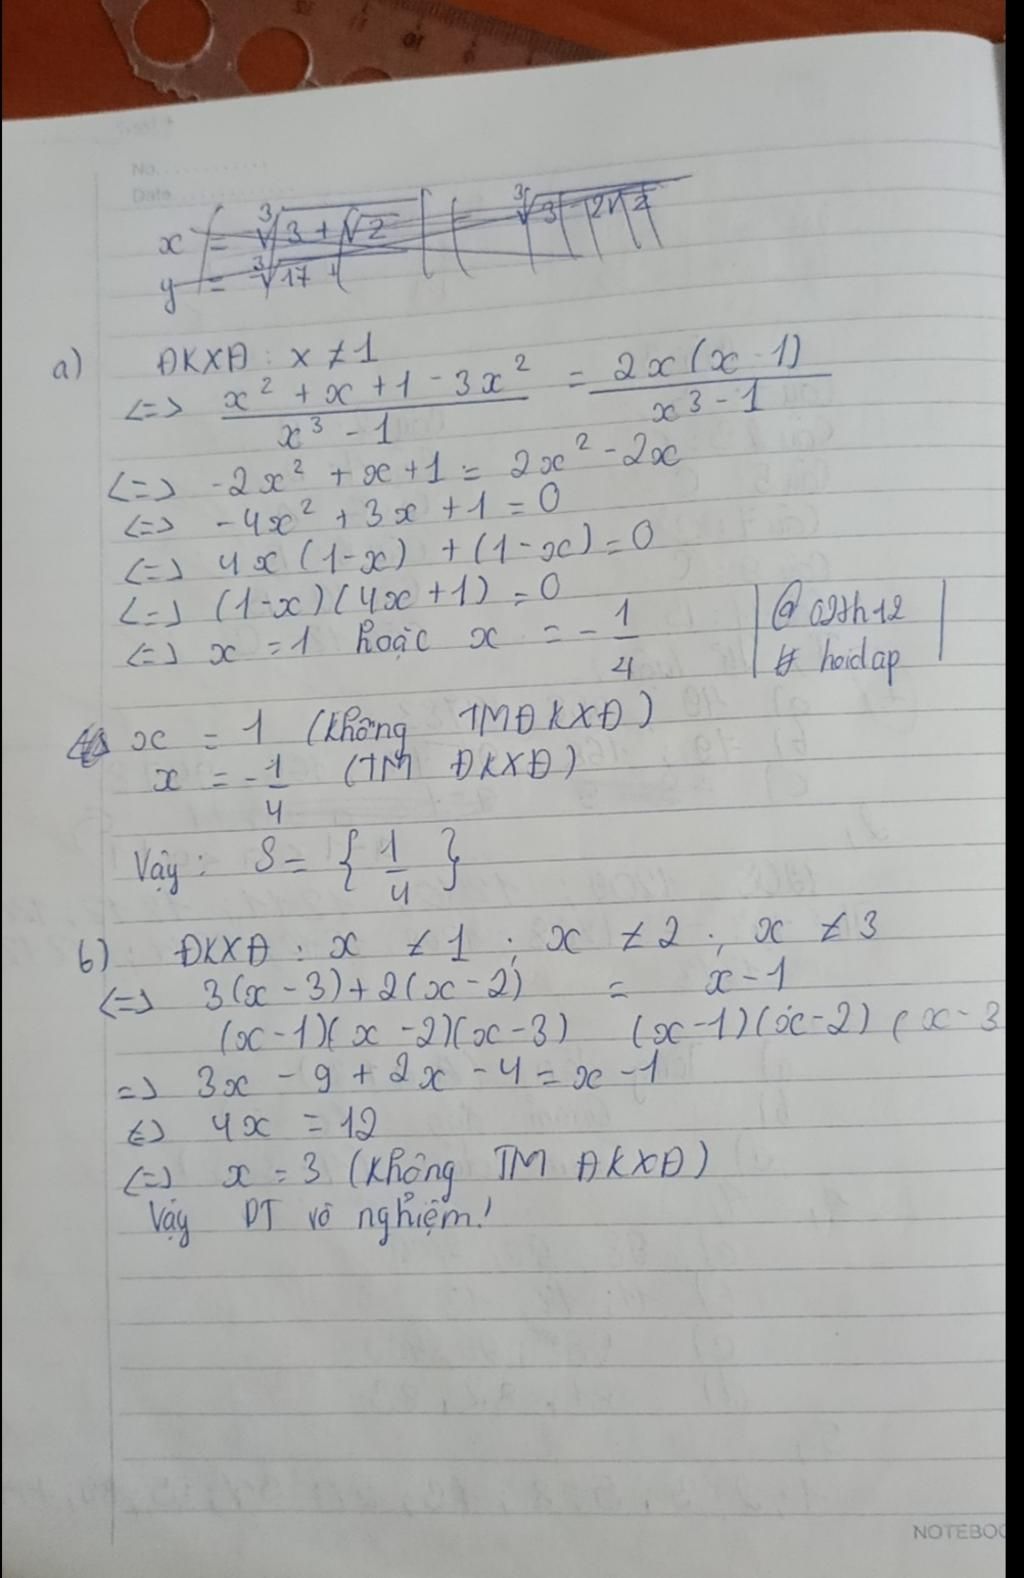 No.
Date
x = ∛3 + √2 = ∛3 2√2
y = ∛17 +
a) ĐKXĐ : x ≠ 1
<=> x² + x + 1 - 3x² / x³ - 1 = 2x(x - 1) / x³ - 1
<=> -2x² + x + 1 = 2x² - 2x
<=> -4x² + 3x + 1 = 0
<=> 4x(1-x) + (1-x) = 0
<=> (1-x)(4x+1) = 0
<=> x = 1 hoặc x = - 1/4
# hoidap
x = 1 (không TMĐKXĐ)
x = - 1/4 (TM ĐKXĐ)
Vậy : S = { 1/4 }
b) ĐKXĐ : x ≠ 1 ; x ≠ 2 ; x ≠ 3
<=> 3(x - 3) + 2(x - 2) / (x-1)(x-2)(x-3) = x - 1 / (x-1)(x-2)(x-3
=> 3x - 9 + 2x - 4 = x - 1
<=> 4x = 12
<=> x = 3 (không TM ĐKXĐ)
Vậy PT vô nghiệm!
NOTEBOO